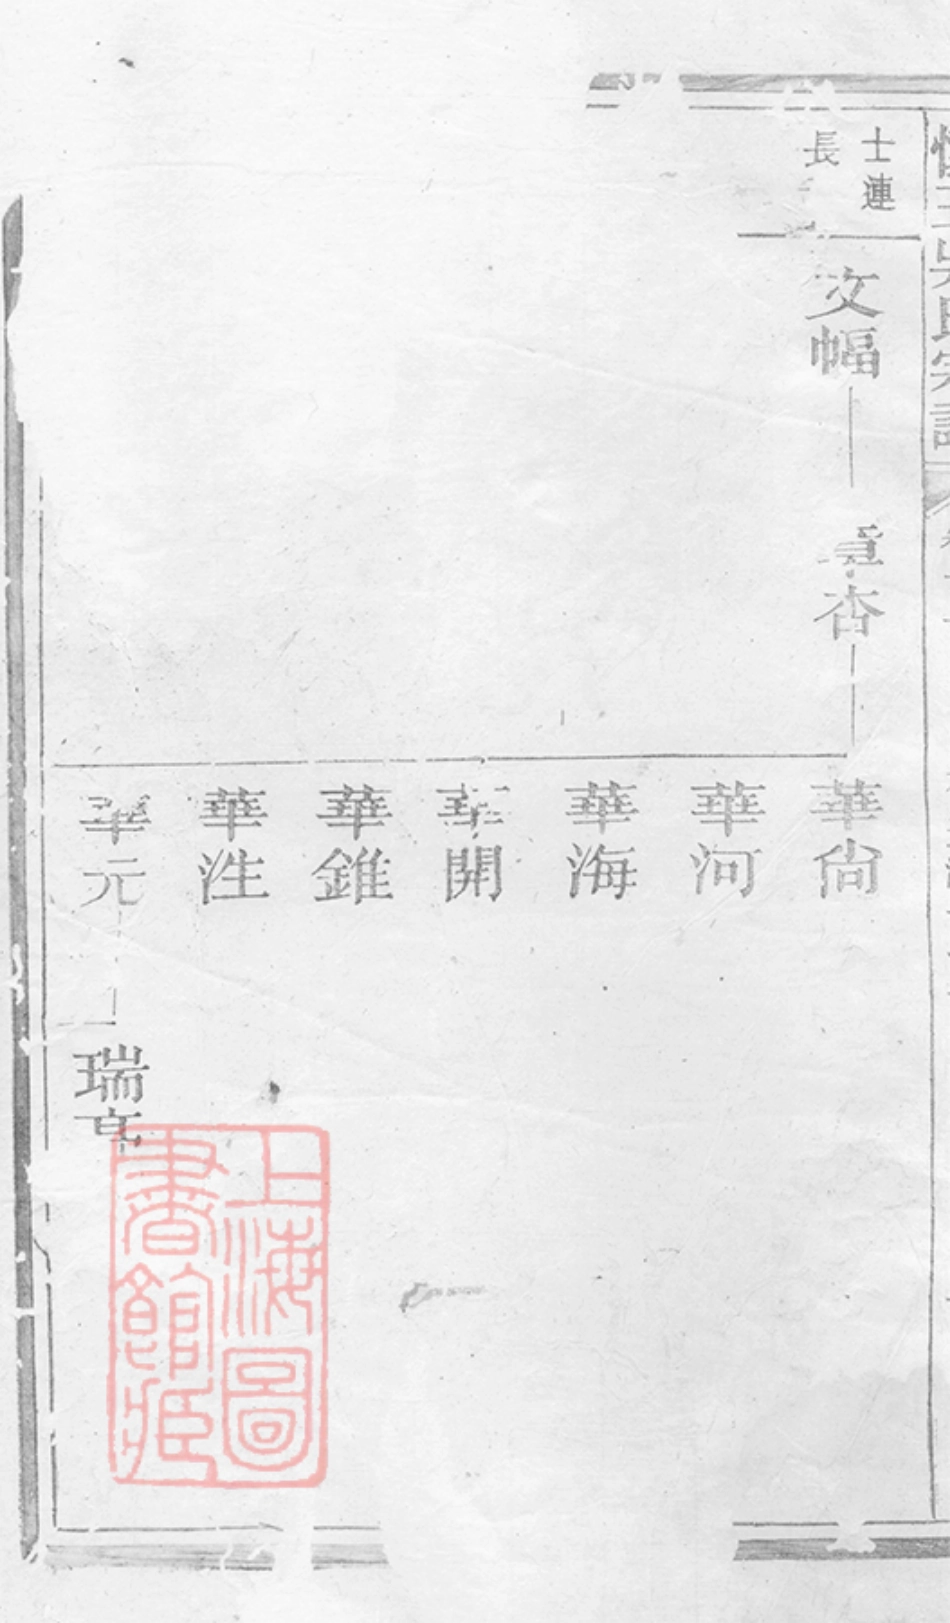 士連
長
文幅
杏
華尙
華河
華海
華開
華錐
華泩
華元
瑞
上海圖
書館藏